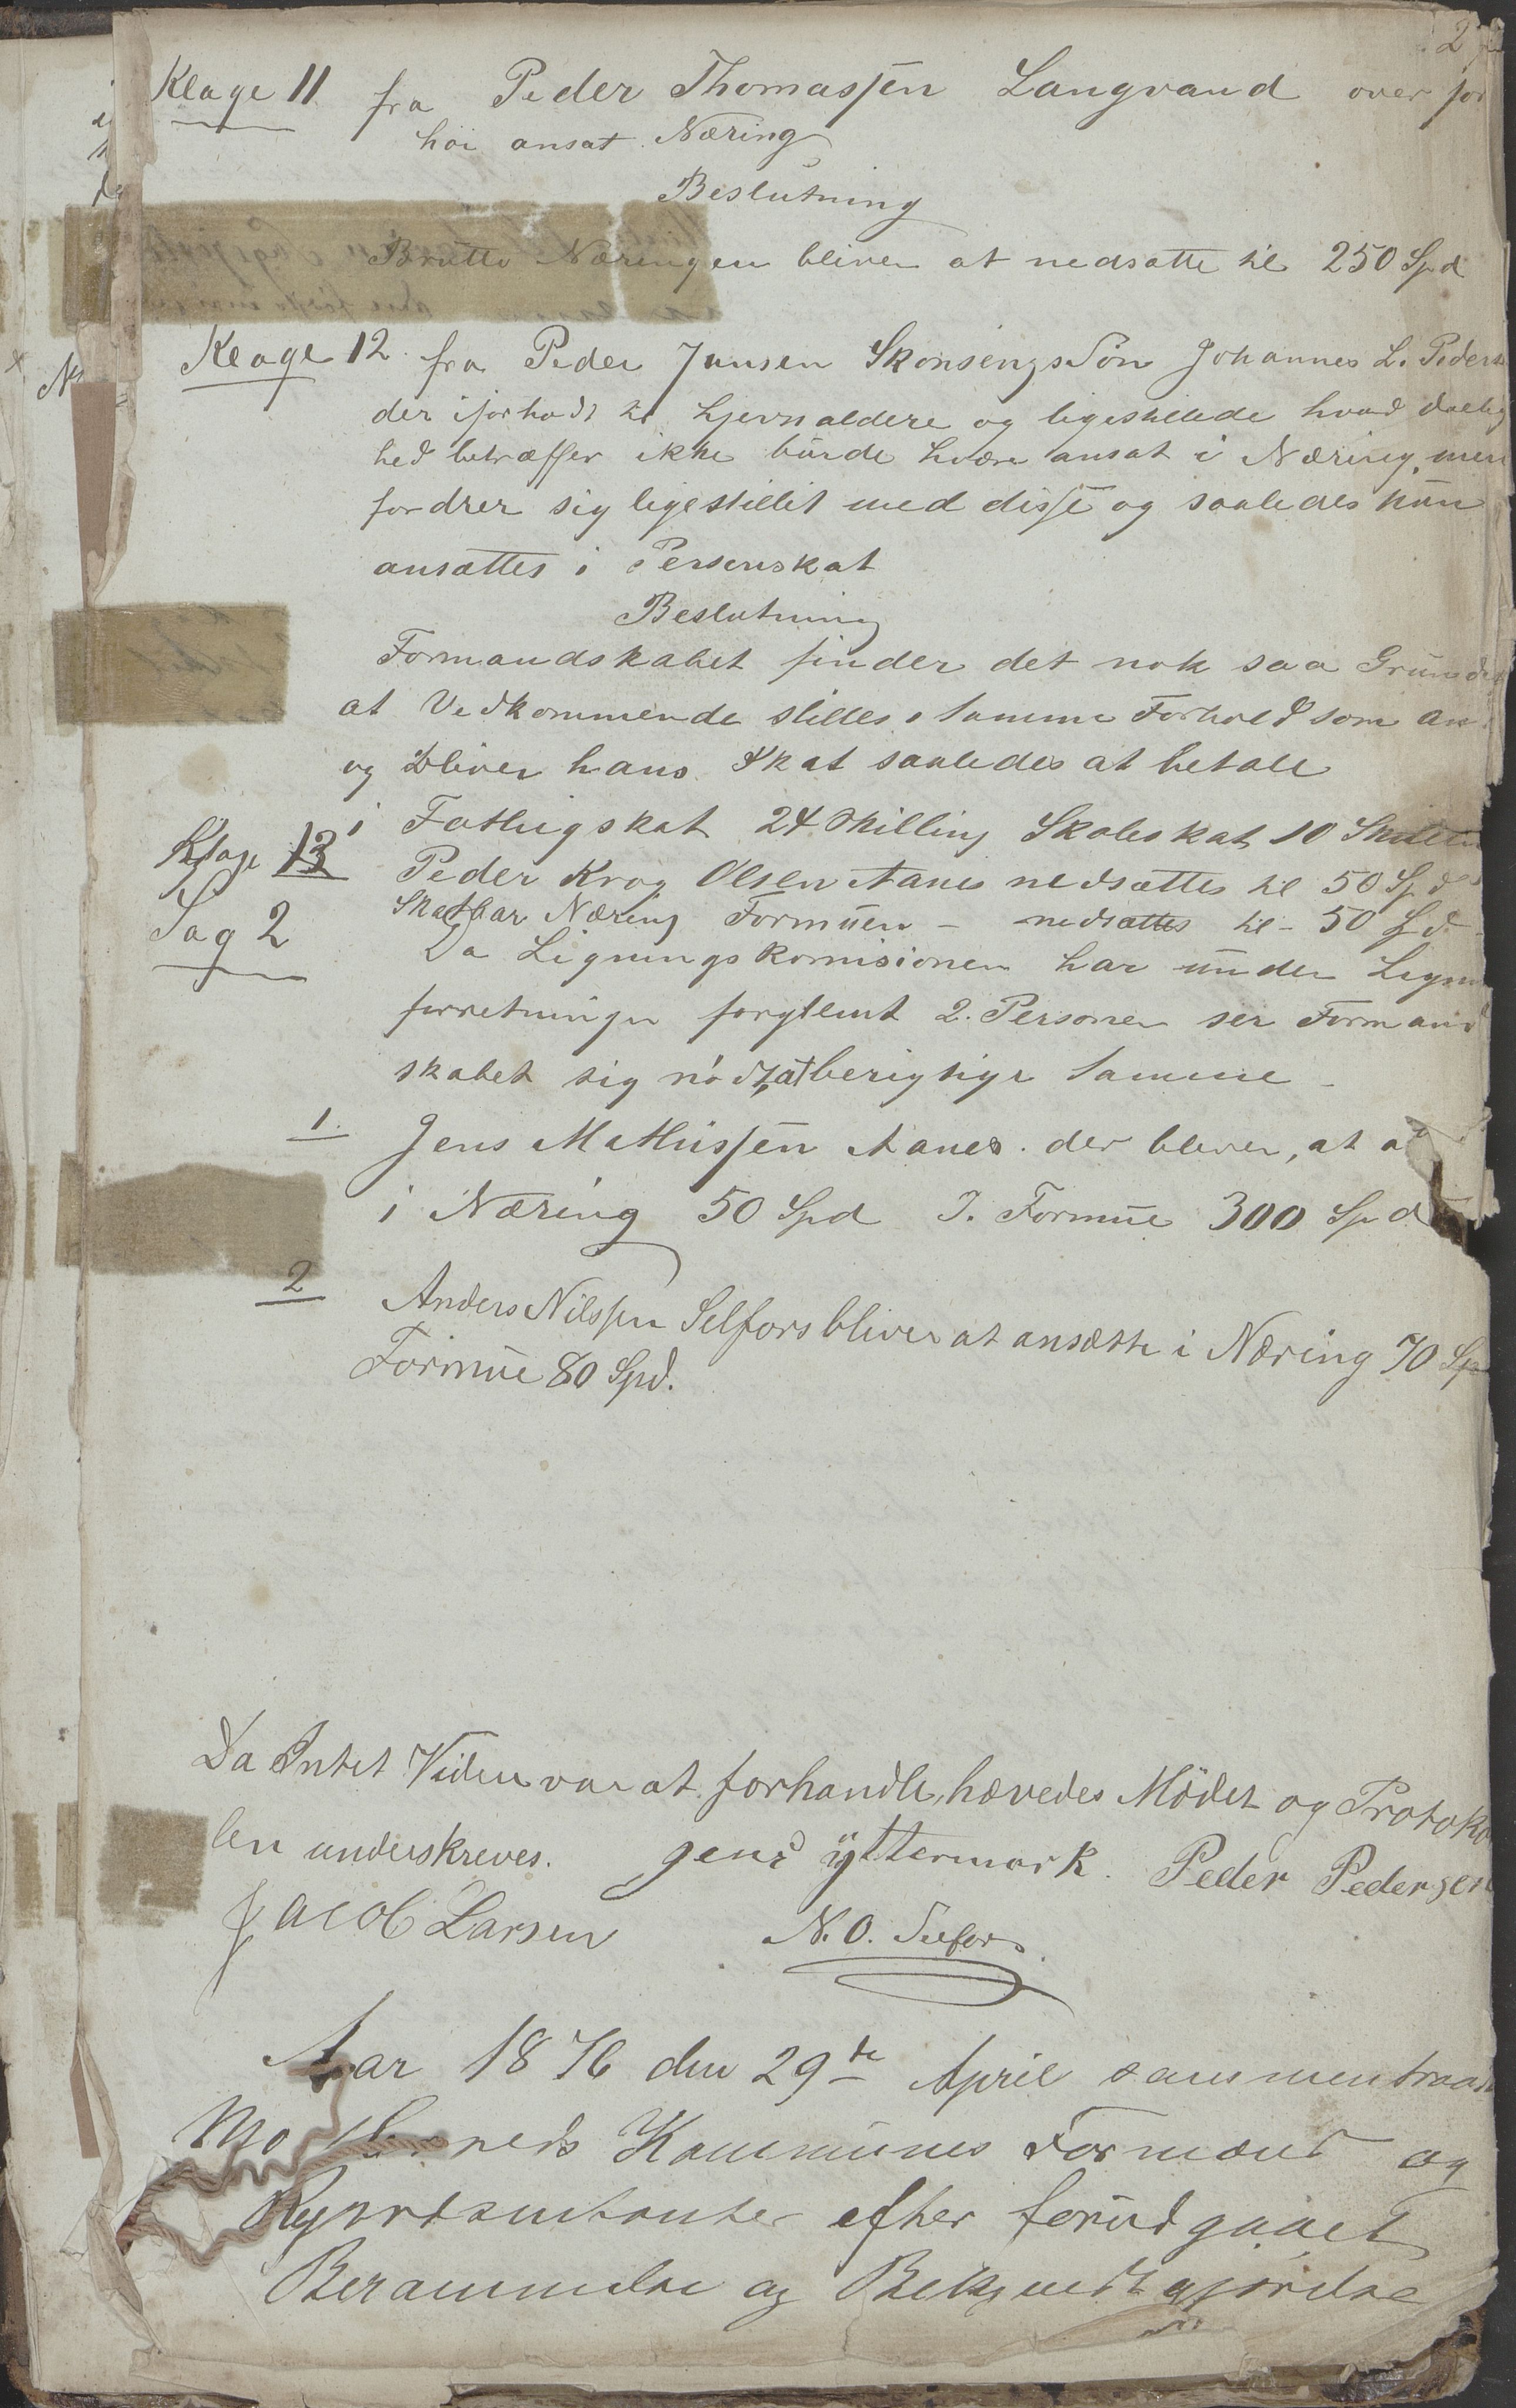 2
Klage 11 fra Peder Thomassen Langvand over for
höi ansat Næring
Beslutning
Brutto Næringen bliver at nedsætte til 250 Spd
Klage 12 fra Peder Jensen Skonsengs Sön Johannes L. Peders
der iforhold til hjevnaldere og ligestillede hvad
hed betræffer ikke burde være ansat i Næring, men
fordrer sig ligestillet med disse og saaledes kun
ansættes i Personskat
Beslutning
Formandskabet finder det nok saa Grund
at Vedkommende stilles i samme Forhold som an
og bliver hans Skat saaledes at betale
i Fattigskat 24 Skilling Skoleskat 10 Skilli
Klage 13 Peder Krog Olsen Aanes nedsættes til 50 Spd
Skatbar Næring Formuen - nedsættes til - 50 Spd
Sag 2 Da Ligningskomisionen har under Lign
forretningen forglemt 2. Personer ser Formand
skabet sig nödt at berigtige Samme -
1. Jens Mathissen Aanes der bliver, at a
i Næring 50 Spd I. Formue 300 Spd
2 Anders Nilssen Selfors bliver at ansætte i Næring 70 Sp
Formue 80 Spd.
Da Intet Videre var at forhandle, hævedes Mödet og Protoko
len underskreves. Jens Yttermark. Peder Pedersen
Jacob Larsen N. O. Selfors.
Aar 1876 den 29de April sammentraad
Mo Kommunes Formænd og
Repræsentanter efter forudgaaet
Berammelse og Bekjendtgjörelse